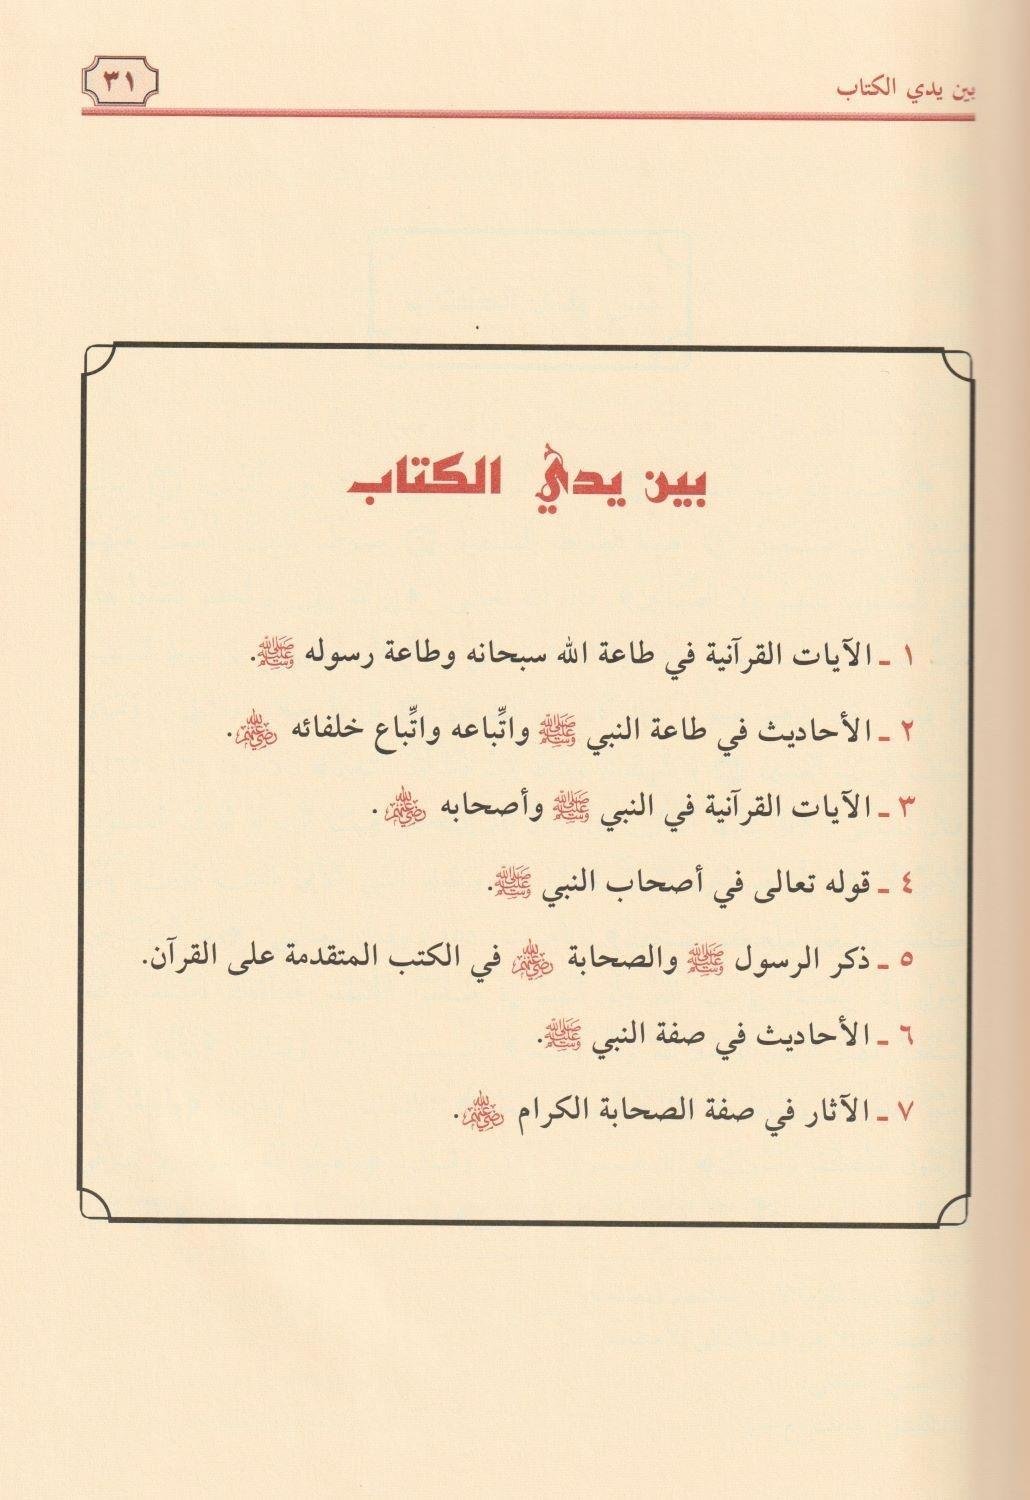 بين يدي الكتاب
٣١
بين يدي الكتاب
١ ـ الآيات القرآنية في طاعة الله سبحانه وطاعة رسوله ﷺ.
٢ ـ الأحاديث في طاعة النبي ﷺ واتِّباعه واتِّباع خلفائه رضي الله عنهم.
٣ ـ الآيات القرآنية في النبي ﷺ وأصحابه رضي الله عنهم.
٤ ـ قوله تعالى في أصحاب النبي ﷺ.
٥ ـ ذكر الرسول ﷺ والصحابة رضي الله عنهم في الكتب المتقدمة على القرآن.
٦ ـ الأحاديث في صفة النبي ﷺ.
٧ ـ الآثار في صفة الصحابة الكرام رضي الله عنهم.